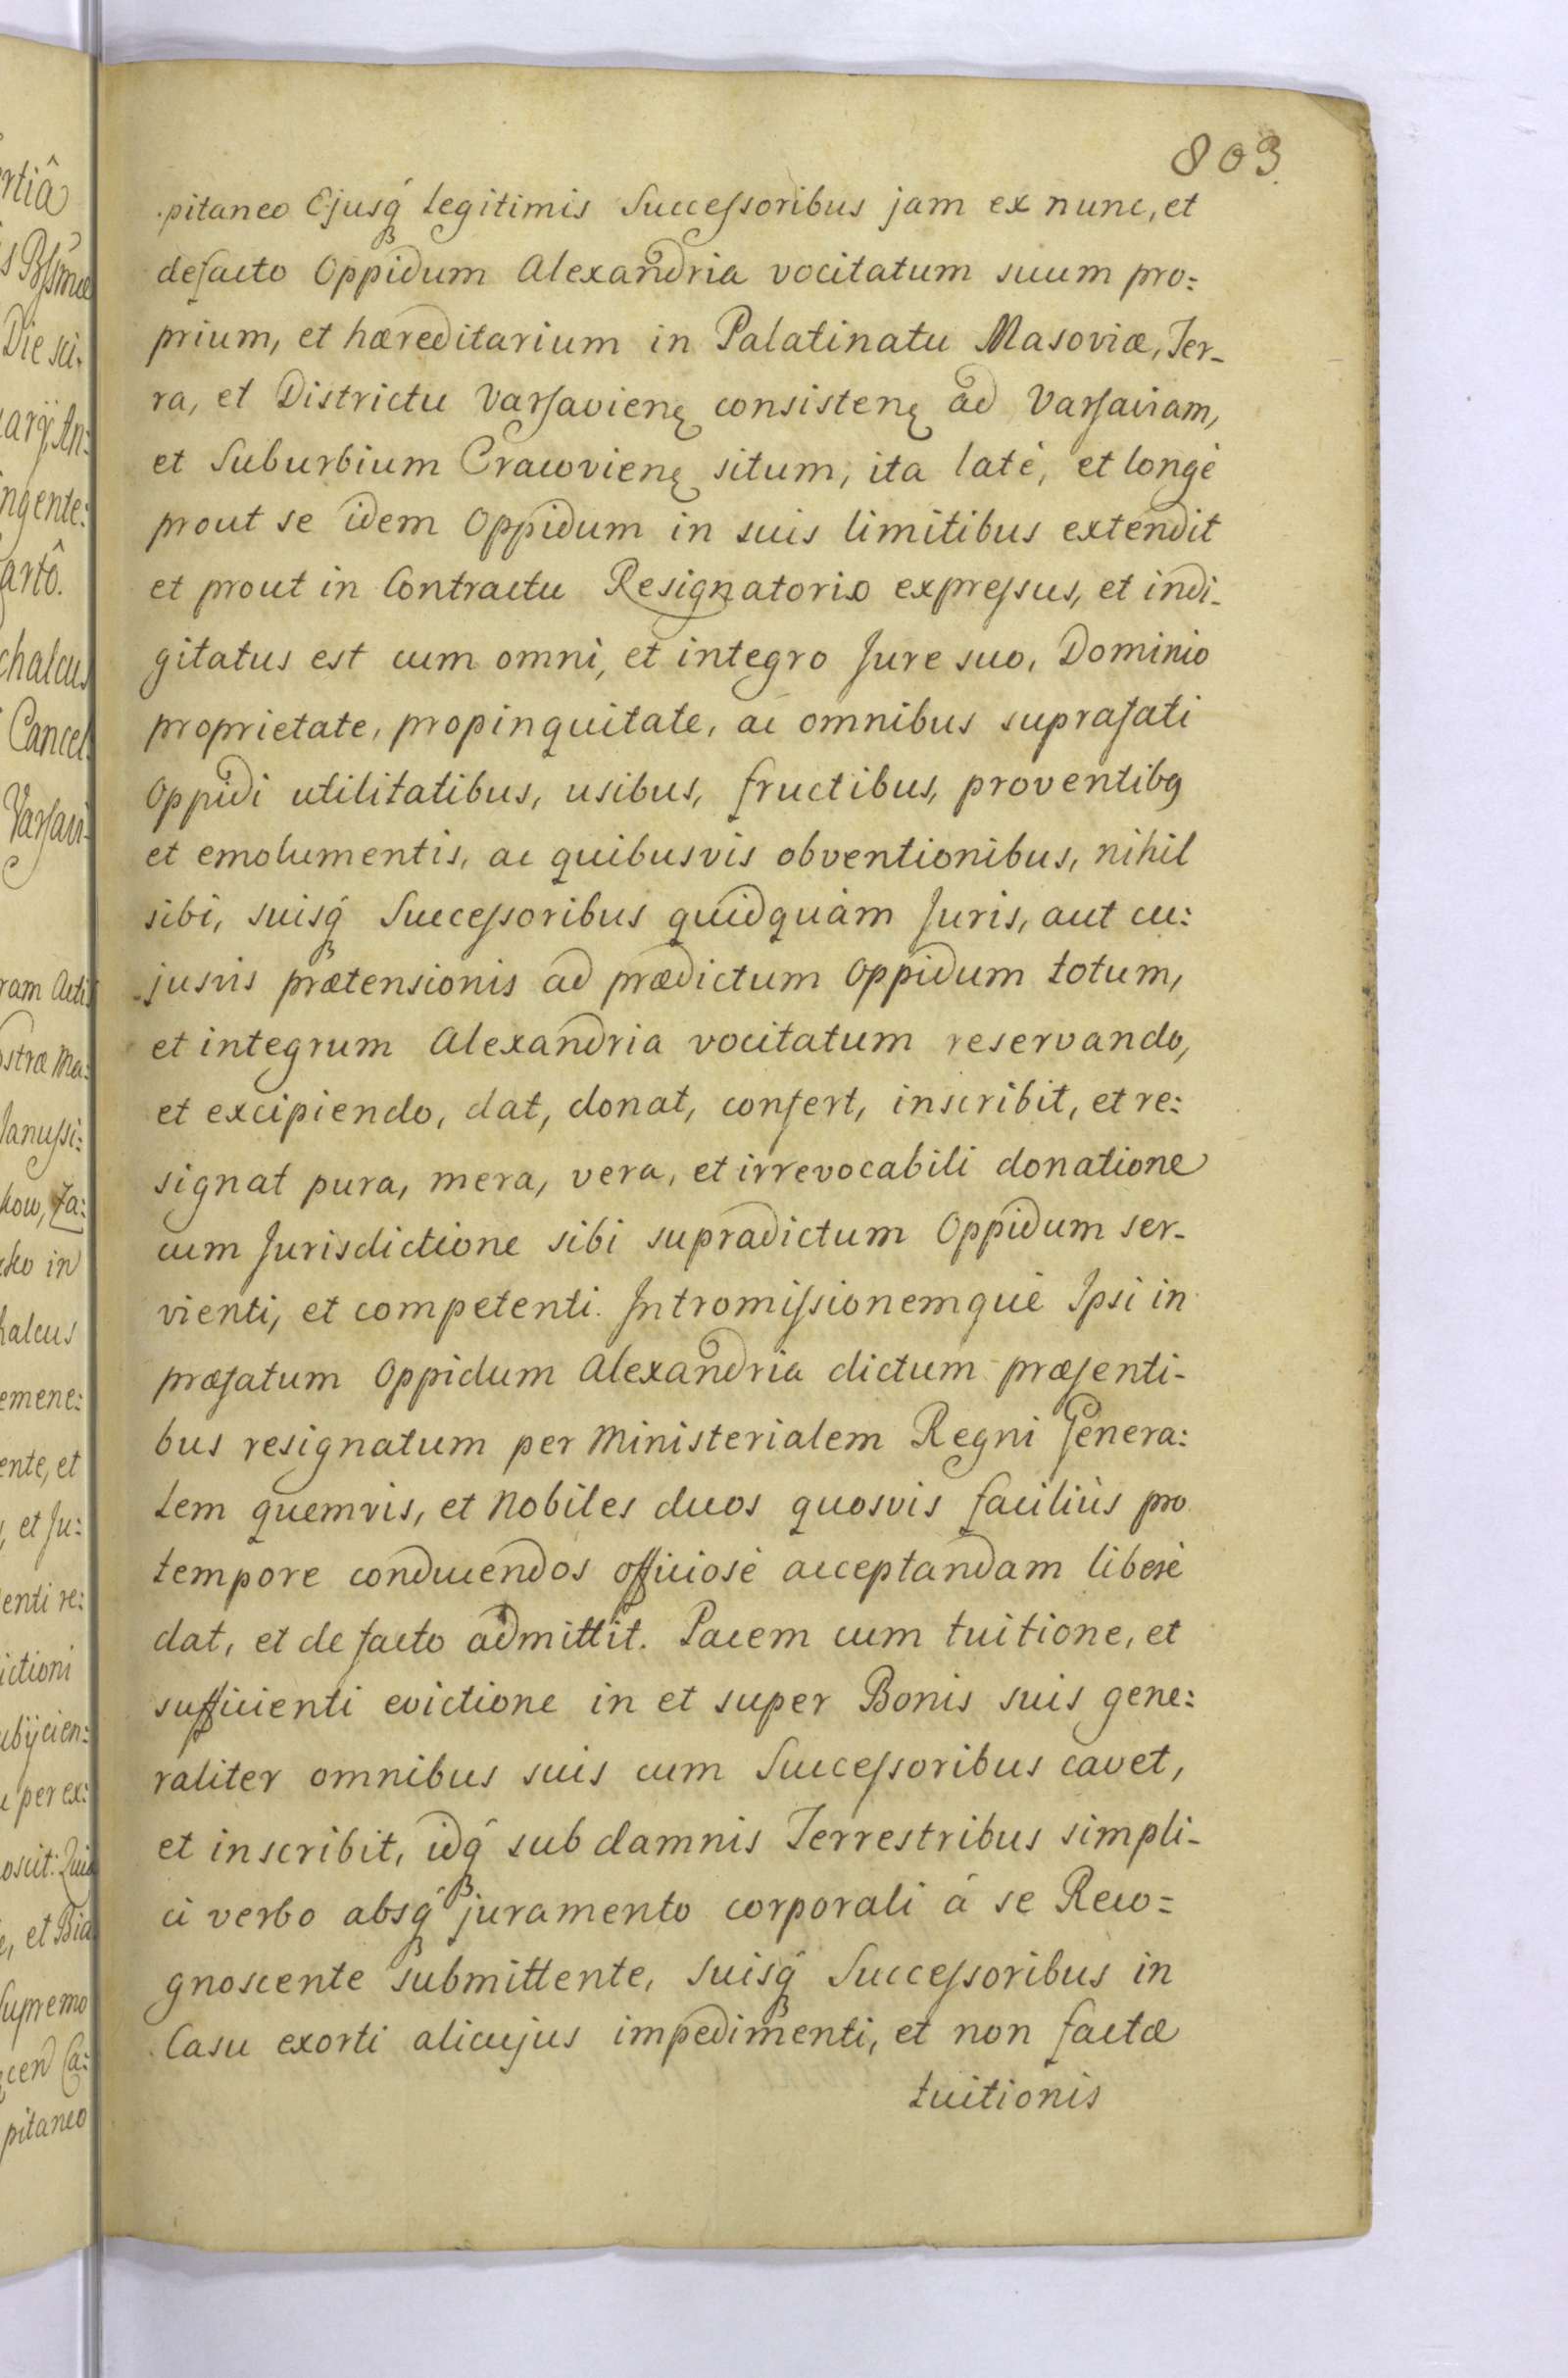 803
pitaneo Ejusq́ legitimis Successoribus jam ex nunc, et
defacto Oppidum Alexandria vocitatum suum pro:
prium, et hæreditarium in Palatinatu Masoviæ, Ter-
ra, et Districtu Varsavienę consistenę ad Varsaviam,
et Suburbium Cracovienę situm, ita latè, et longè
prout se idem Oppidum in suis limitibus extendit
et prout in Contractu Resignatorio expressus, et indi-
gitatus est cum omni, et integro Jure suo, Dominio
proprietate, propinquitate, ac omnibus suprafati
Oppidi utilitatibus, usibus, fructibus, proventibꝯ
et emolumentis, ac quibusvis obventionibus, nihil
sibi, suisq́ Successoribus quidquàm Juris, aut cu:
jusvis prætensionis ad prædictum Oppidum totum,
et integrum Alexandria vocitatum reservando,
et excipiendo, dat, donat, confert, inscribit, et re:
signat pura, mera, vera, et irrevocabili donatione
cum Jurisdictione sibi supradictum Oppidum ser-
vienti, et competenti. Intromissionemquè Ipsi in
præfatum Oppidum Alexandria dictum præsenti-
bus resignatum per Ministerialem Regni Genera:
lem quemvis, et Nobiles duos quosvis faciliùs pro
tempore conducendos officiosè acceptandam liberè
dat, et de facto admittit. Pacem cum tuitione, et
sufficienti evictione in et super Bonis suis gene:
raliter omnibus suis cum Successoribus cavet,
et inscribit, idq́ sub damnis Terrestribus simpli-
ci verbo absq́ juramento corporali á se Reco=
gnoscente submittente, suisq́ Successoribus in
Casu exorti alicujus impedimenti, et non factæ
tuitionis